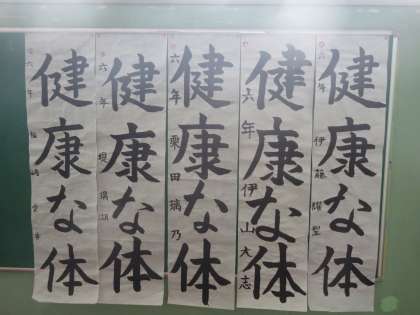 健康な体
六年 伊藤
健康な体
六年 伊山大志
健康な体
六年 栗田瑞乃
健康な体
六年 堤
健康な体
六年